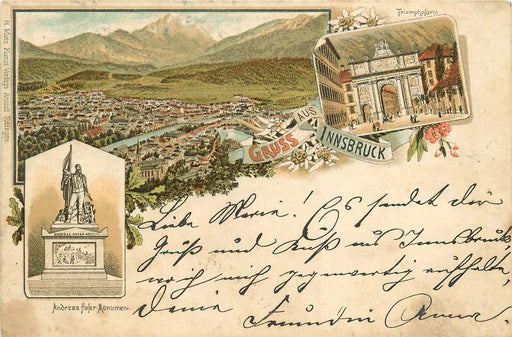 H. Metz Kunst-Verlags-Anstalt Tübingen
Triumphpforte
GRUSS AUS
INNSBRUCK
ANDREAS HOFER
Andreas Hofer-Monument
Liebe Marie! Es sendet dir
Gruß und Kuß aus Innsbruck,
wo ich mich gegenwärtig aufhalte,
deine Freundin Anna.